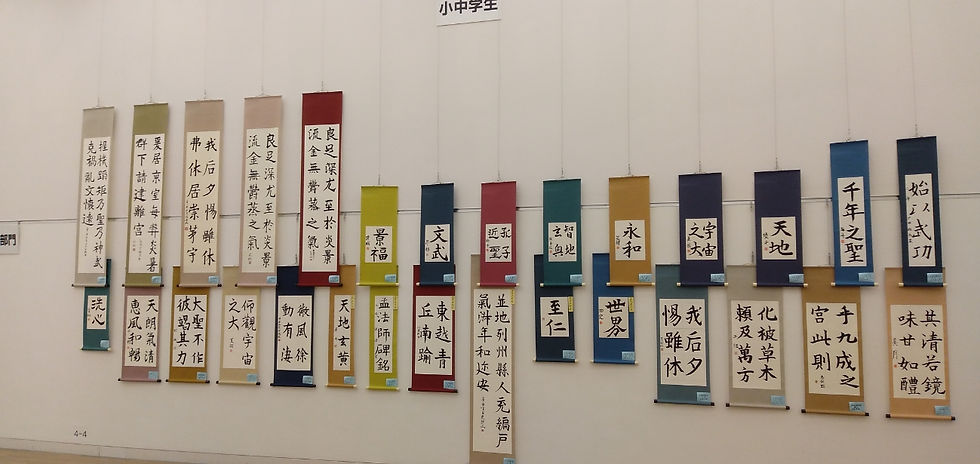 小中学生
部門
握機蹈矩乃聖乃神武
克禍亂文懷遠
爰居京室每弊炎暑
群下請建離宮
我后夕惕雖休
弗休居崇茅宇
良足深尤至於炎景
流金無鬱蒸之氣
良足深尤至於炎景
流金無鬱蒸之氣
景福
文武
孔子
近聖
智地
玄奥
永和
宇宙
之大
天地
千年之聖
始以武功
洗心
天朗氣清
恵風和暢
大聖不作
彼竭其力
仰観宇宙
之大
微風徐
動有淒
天地玄黄
孟法師碑銘
東越青
丘南踰
並地列州縣人充編戸
氣淑年和迩安
至仁
世界
我后夕
惕雖休
化被草木
頼及萬方
乎九成之
宮此則
其清若鏡
味甘如醴
4-4